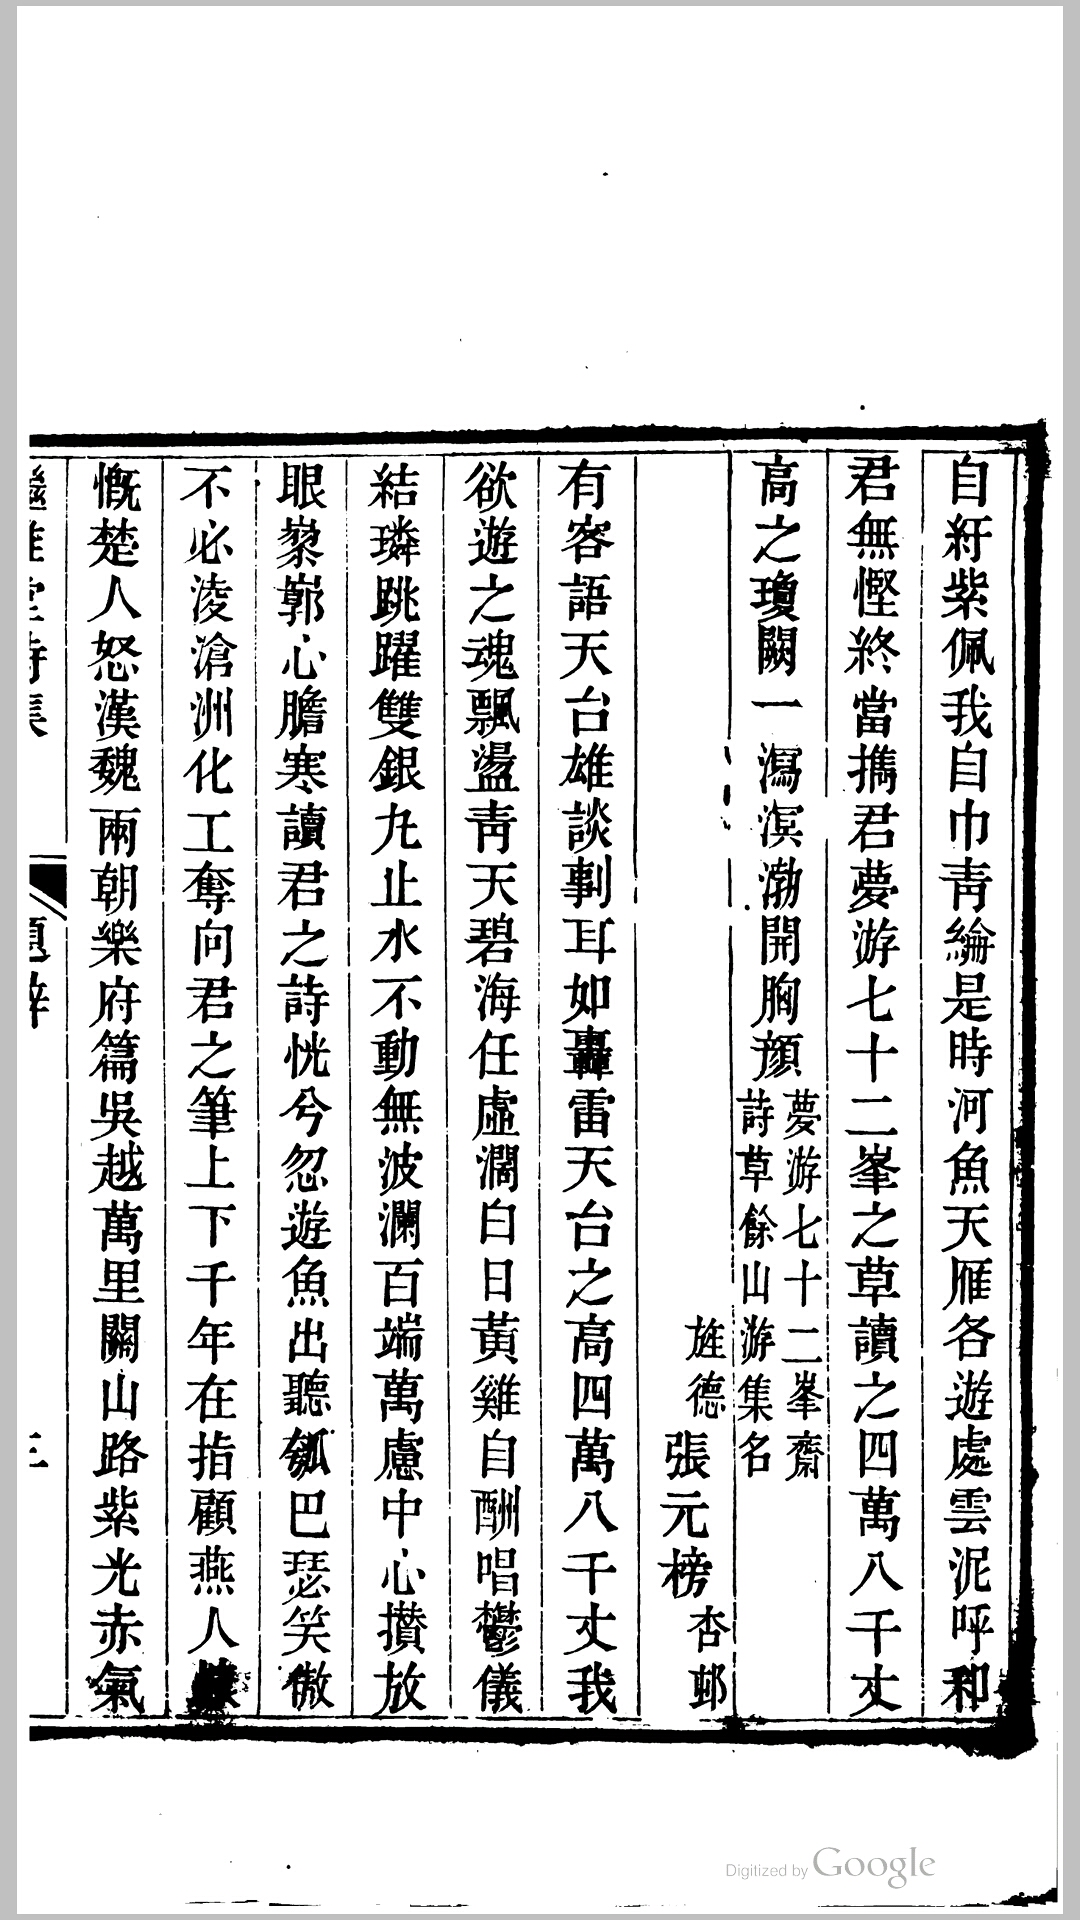 自紆紫佩我自巾靑綸是時河魚天雁各遊處雲泥呼和
君無慳終當攜君夢游七十二峯之草讀之四萬八千丈
高之瓊闕一瀉溟渤開胸顔
夢游七十二峯齋
詩草餘山游集名
旌德
張元榜
杏邨
有客語天台雄談剚耳如轟雷天台之高四萬八千丈我
欲遊之魂飄盪靑天碧海任虛濶白日黃雞自酬唱鬱儀
結璘跳躍雙銀丸止水不動無波瀾百端萬慮中心攢放
眼嵾嶎心膽寒讀君之詩恍兮忽遊魚出聽瓠巴瑟笑傲
不必淩滄洲化工奪向君之筆上下千年在指顧燕人
慨楚人怒漢魏兩朝樂府篇吳越萬里關山路紫光赤氣
題辞
三
Digitized by Google